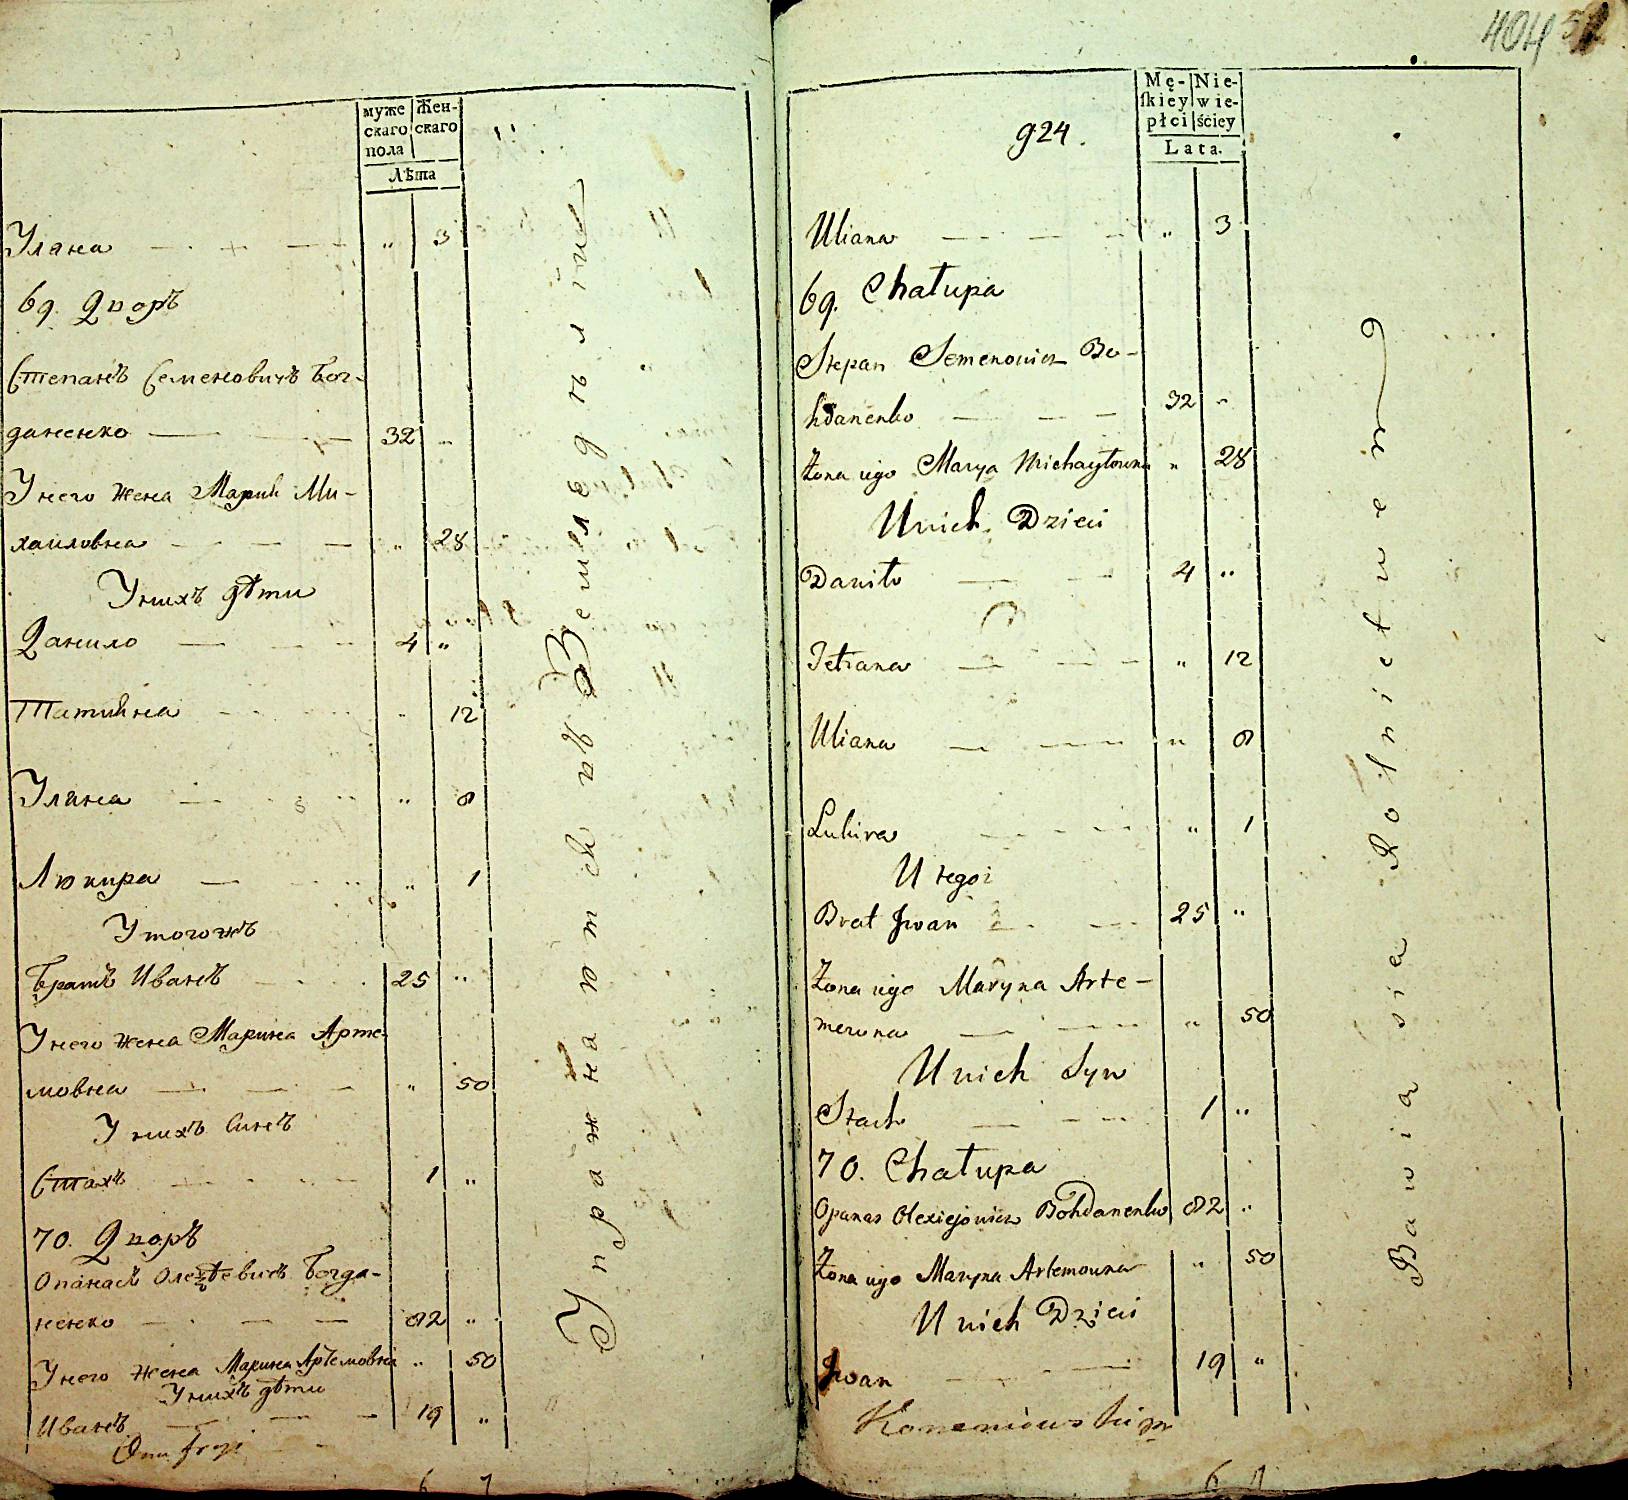 муже
скаго
пола
Жен-
скаго
Лѣта
Уляна — " 3
69. Дворъ
Степанъ Семеновичъ Бог-
даненко — 32 "
У него жена Мария Ми-
хаиловна — " 28
У нихъ дѣти
Данило — 4 "
Татияна — " 12
Уляна — " 8
Люкира — " 1
У тогожъ
Братъ Иванъ — 25 "
У него жена Марина Арте-
мовна — " 50
У нихъ Синъ
Стахъ — 1 "
70. Дворъ
Опанасъ Олексѣевичъ Богда-
ненко — 82 "
У него жена Марина Артемовна " 50
У нихъ дѣти
Иванъ — 19 "
Onufrej
6 7
Упражнаются въ Земледѣлии
404
924.
Mę-
skiey
płci
Nie-
wie-
ściey
Lata.
Uliana — " 3
69. Chałupa
Stepan Semenowicz Bo-
hdanenko — 32 "
Żona iego Marya Michayłowna " 28
U nich Dzieci
Daniło — 4 "
Tetiana — " 12
Uliana — " 8
Lukira — " 1
U tegoż
Brat Jwan — 25 "
Żona iego Maryna Arte-
mowna — " 50
U nich Syn
Stach — 1 "
70. Chałupa
Opanas Olexiejowicz Bohdanenko 82 "
Żona iego Maryna Artemowna " 50
U nich Dzieci
Jwan — 19 "
6 7
Bawią sie Rolnictwem